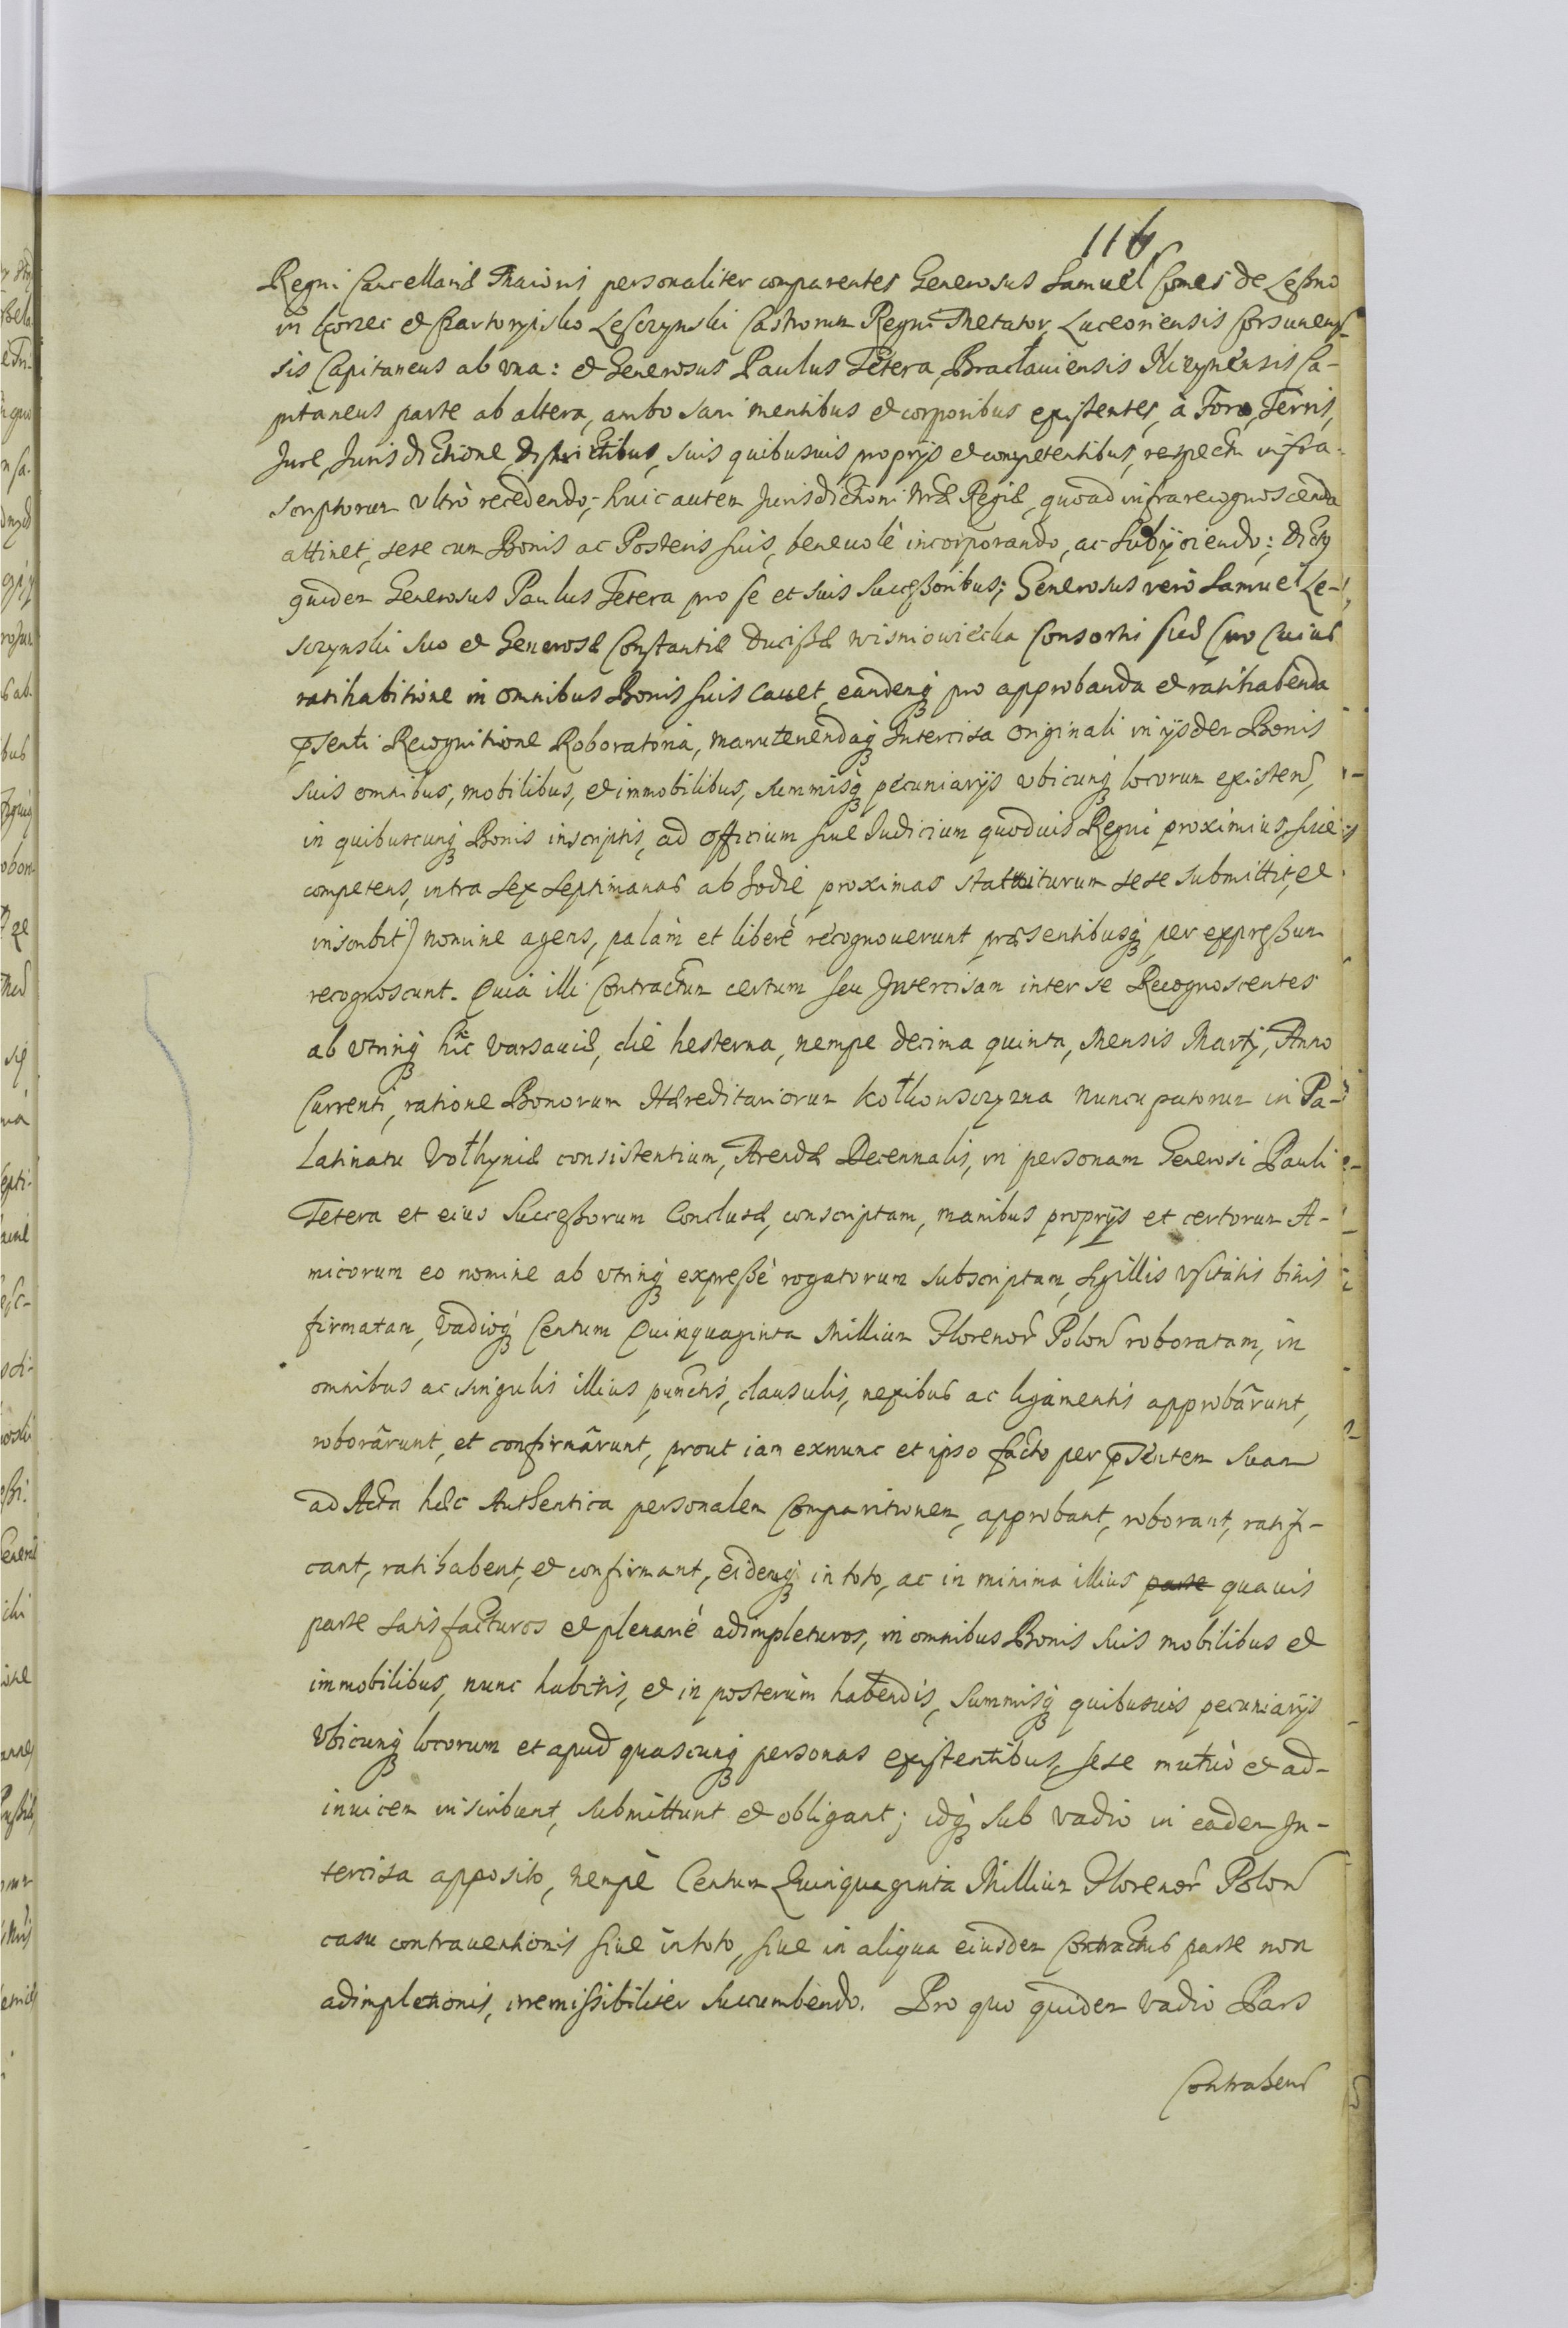 116
Regni Cancellariæ Maioris personaliter comparentes Generosus Samuel Comes de Leßno
in Korzec et Czartoryisko Lesczynski Castrorum Regni Metator, Luceoriensis Corsunen-
sis Capitaneus ab vna: et Generosus Paulus Tetera, Bracłauiensis Nizynensis Ca-
pitaneus parte ab altera, ambo sani mentibus et corporibus existentes, à Foro, Terris,
Jure, Jurisdictione, districtibus, suis quibusuis proprijs et competentibus, respectu infra-
scriptorum vltrò recedendo; huic autem Jurisdictioni Nræ Regiæ, quoad infrarecognoscenda
attinet, sese cum Bonis ac Posteris suis, beneuolè incorporando, ac subijciendo: dicty
quidem Generosus Paulus Tetera pro se et suis Succeßoribus; Generosus verò Samuel Le-
sczynski suo et Generosæ Constantiæ Ducißæ Wisniowiecka Consortis suæ (pro cuius
ratihabitione in omnibus Bonis suis cauet, eandemq pro approbanda et ratihabenda
psenti Recognitione Roboratoria, manutenendaq Intercisa originali in ijsdem Bonis
suis omnibus, mobilibus, et immobilibus, summisq pecuniarijs vbicunq locorum existen,
in quibuscunq Bonis inscriptis, ad officium siue Iudicium quoduis Regni proximius, siue
competens, intra sex septimanas ab hodie proximas statuiturum sese submittit, et
inscribit) nomine agens, palàm et liberè recognouerunt præsentibusq per expreßum
recognoscunt. Quia illi Contractum certum seu Intercisam inter se Recognoscentes
ab vtrinq hic Varsauiæ, die hesterna, nempe decima quinta, Mensis Martij, Anno
Currenti, ratione Bonorum Hæreditariorum Kołkowsczyzna nuncupatorum in Pa-
latinatu Vołhyniæ consistentium, Arendæ Decennalis, in personam Generosi Pauli
Tetera et eius Succeßorum Conclusæ, conscriptam, manibus proprijs et certorum A-
micorum eo nomine ab vtrinq expreßè rogatorum subscriptam, Sigillis vsitatis binis
firmatam, vadioq Centum Quinquaginta Millium Florenor Polon roboratam, in
omnibus ac singulis illius punctis, clausulis, nexibus ac ligamentis approbârunt,
roborârunt, et confirmârunt, prout iam exnunc et ipso facto per psentem suam
ad Acta hæc Authentica personalem Comparitionem, approbant, roborant, ratifi-
cant, ratihabent, et confirmant, eidemq in toto, ac in minima illius parte quauis
parte satisfacturos et plenariè adimpleturos, in omnibus Bonis suis mobilibus et
immobilibus, nunc habitis, et in posterùm habendis, summisq quibusuis pecuniarijs
vbicunq locorum et apud quascunq personas existentibus, sese mutuò et ad-
inuicem inscribunt, submittunt et obligant; idq sub vadio in eadem In-
tercisa apposito, nempè Centum Quinquaginta Millium Florenor Polon
casu contrauentionis siue in toto, siue in aliqua eiusdem Contractus parte non
adimpletionis, irremissibiliter succumbendo. Pro quo quidem vadio Pars
Contrahens